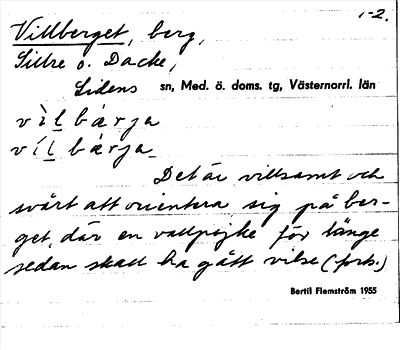 1-2.
Villberget, berg,
Sillre o. Dacke,
Lidens sn, Med. ö. doms. tg, Västernorrl. län
vìlbárja
vílbárja
Det är villsamt och
svårt att orientera sig på ber-
get, där en vallpojke för länge
sedan skall ha gått vilse (forts.)
Bertil Flemström 1955